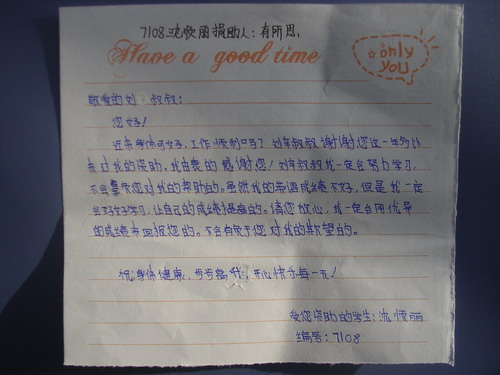 7108沈顺丽捐助人:有所思,
Have a good time
only
you
敬爱的刘 叔叔:
您好!
近来身体可好,工作顺利吗?刘 叔叔谢谢您这一年多以
来对我的资助,我由衷的感谢您!刘 叔叔我一定会努力学习,
不会辜负您对我的帮助的。虽然我的英语成绩不好,但是我一定
会好好学习,让自己的成绩提高的。请您放心,我一定会用优异
的成绩来回报您的。不会有负于您对我的期望的。
祝:身体健康,步步高升,开心快乐每一天!
受您资助的学生:沈顺丽
编号:7108